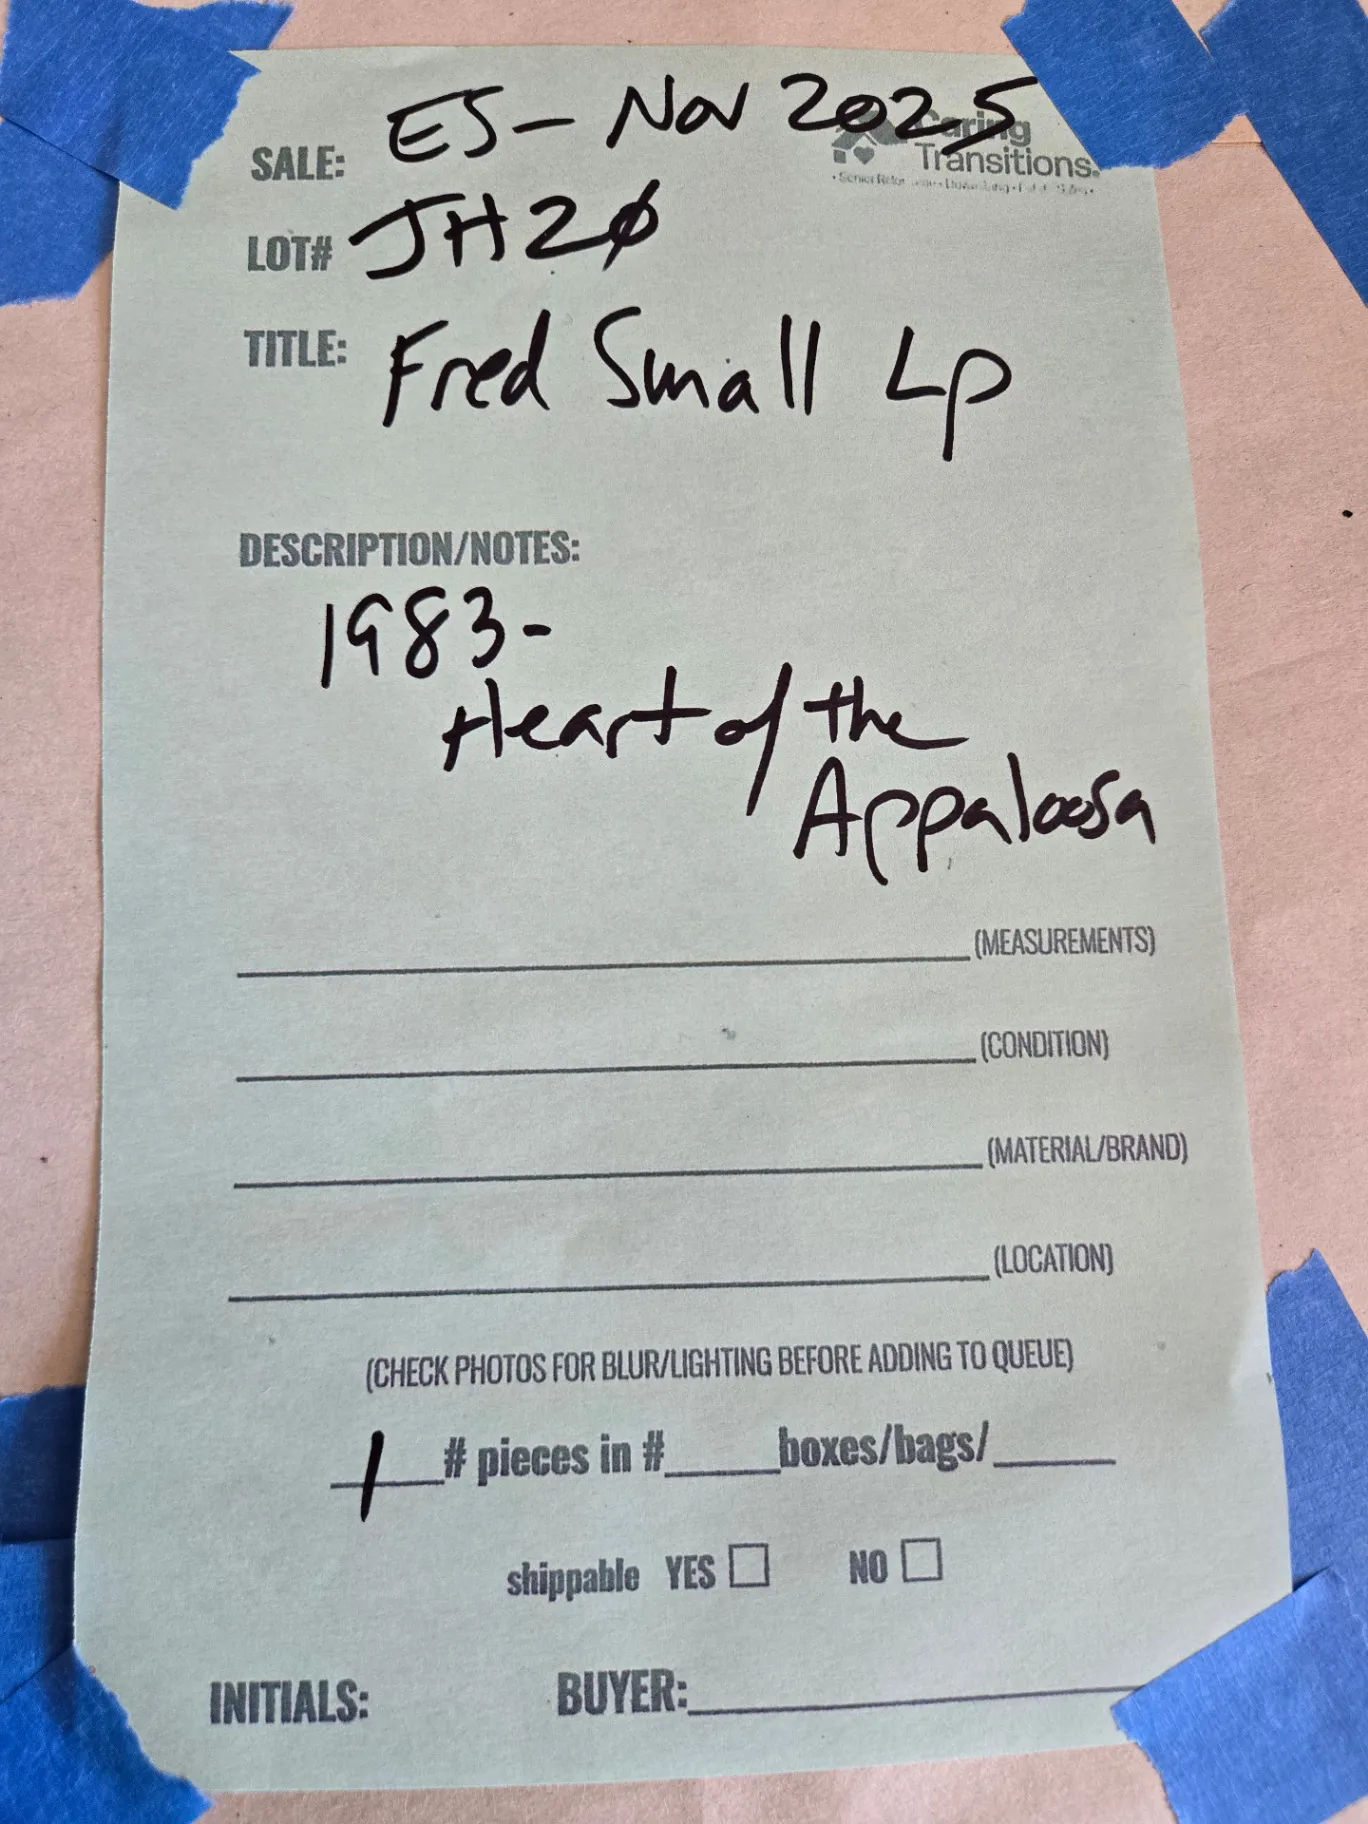 SALE: ES - Nov 2025
Caring
Transitions.
LOT# JH20
TITLE: Fred Small Lp
DESCRIPTION/NOTES:
1983-
Heart of the
Appaloosa
(MEASUREMENTS)
(CONDITION)
(MATERIAL/BRAND)
(LOCATION)
(CHECK PHOTOS FOR BLUR/LIGHTING BEFORE ADDING TO QUEUE)
1 # pieces in #_____boxes/bags/_____
shippable YES ☐ NO ☐
INITIALS: BUYER: